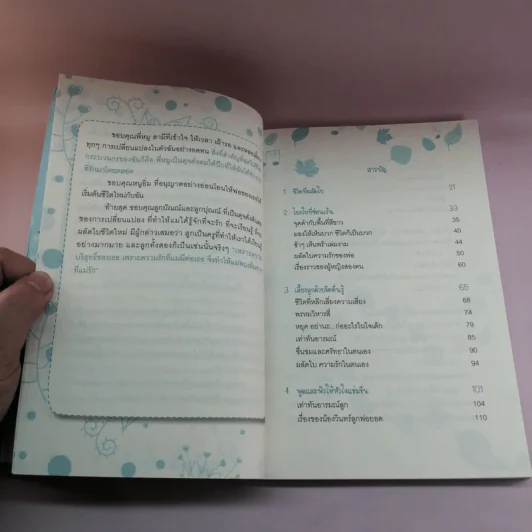 ขอบคุณพี่หมู สามีที่เข้าใจ ให้เวลา เฝ้ารอ และ
ทุกๆ การเปลี่ยนแปลงในตัวฉันอย่างอดทน
กระบวนกรของฉันก็คือ พี่หมู
ขอบคุณหนูอิ่ม ที่อนุญาตอย่างอ่อนโยนให้
เริ่มต้นชีวิตใหม่กับฉัน
ท้ายสุด ขอบคุณลูกปัณณ์และลูกปุณณ์ ที่เป็น
ของการเปลี่ยนแปลง ที่ทำให้แม่ได้รู้จักที่จะรัก ที่จะเรียนรู้
ผลัดใบชีวิตใหม่ มีผู้กล่าวเสมอว่า ลูกเป็นครูที่ทำให้เราได้เรียนรู้
อย่างมากมาย และลูกทั้งสองก็เป็นเช่นนั้นจริงๆ
บริสุทธิ์ของเธอ เพราะความรักที่แม่มีต่อเธอ จึงทำให้แม่พบเส้นทาง
ที่แม่รัก"
สารบัญ
1 ชีวิตที่ผลัดใบ 21
2 ใบไม้ที่ซ่อนเร้น 33
จุดดำกับพื้นที่สีขาว 35
มองให้เห็นบวก ชีวิตก็เป็นบวก 40
ช้าๆ เห็นพร้าเล่มงาม 44
ผลัดใบความรักของพ่อ 50
เรื่องราวของผู้หญิงสองคน 60
3 เลี้ยงลูกด้วยจิตตื่นรู้ 65
ชีวิตที่หลีกเลี่ยงความเสี่ยง 68
พรหมวิหารสี่ 74
หยุด อย่านะ...ก่ออะไรในใจเด็ก 79
เท่าทันอารมณ์ 85
ชื่นชมและศรัทธาในตนเอง 90
ผลัดใบ ความรักในตนเอง 94
4 พูดและฟังให้หัวใจแช่มชื่น 101
เท่าทันอารมณ์ลูก 104
เรื่องของน้องวินทร์ลูกพ่อยอด 110